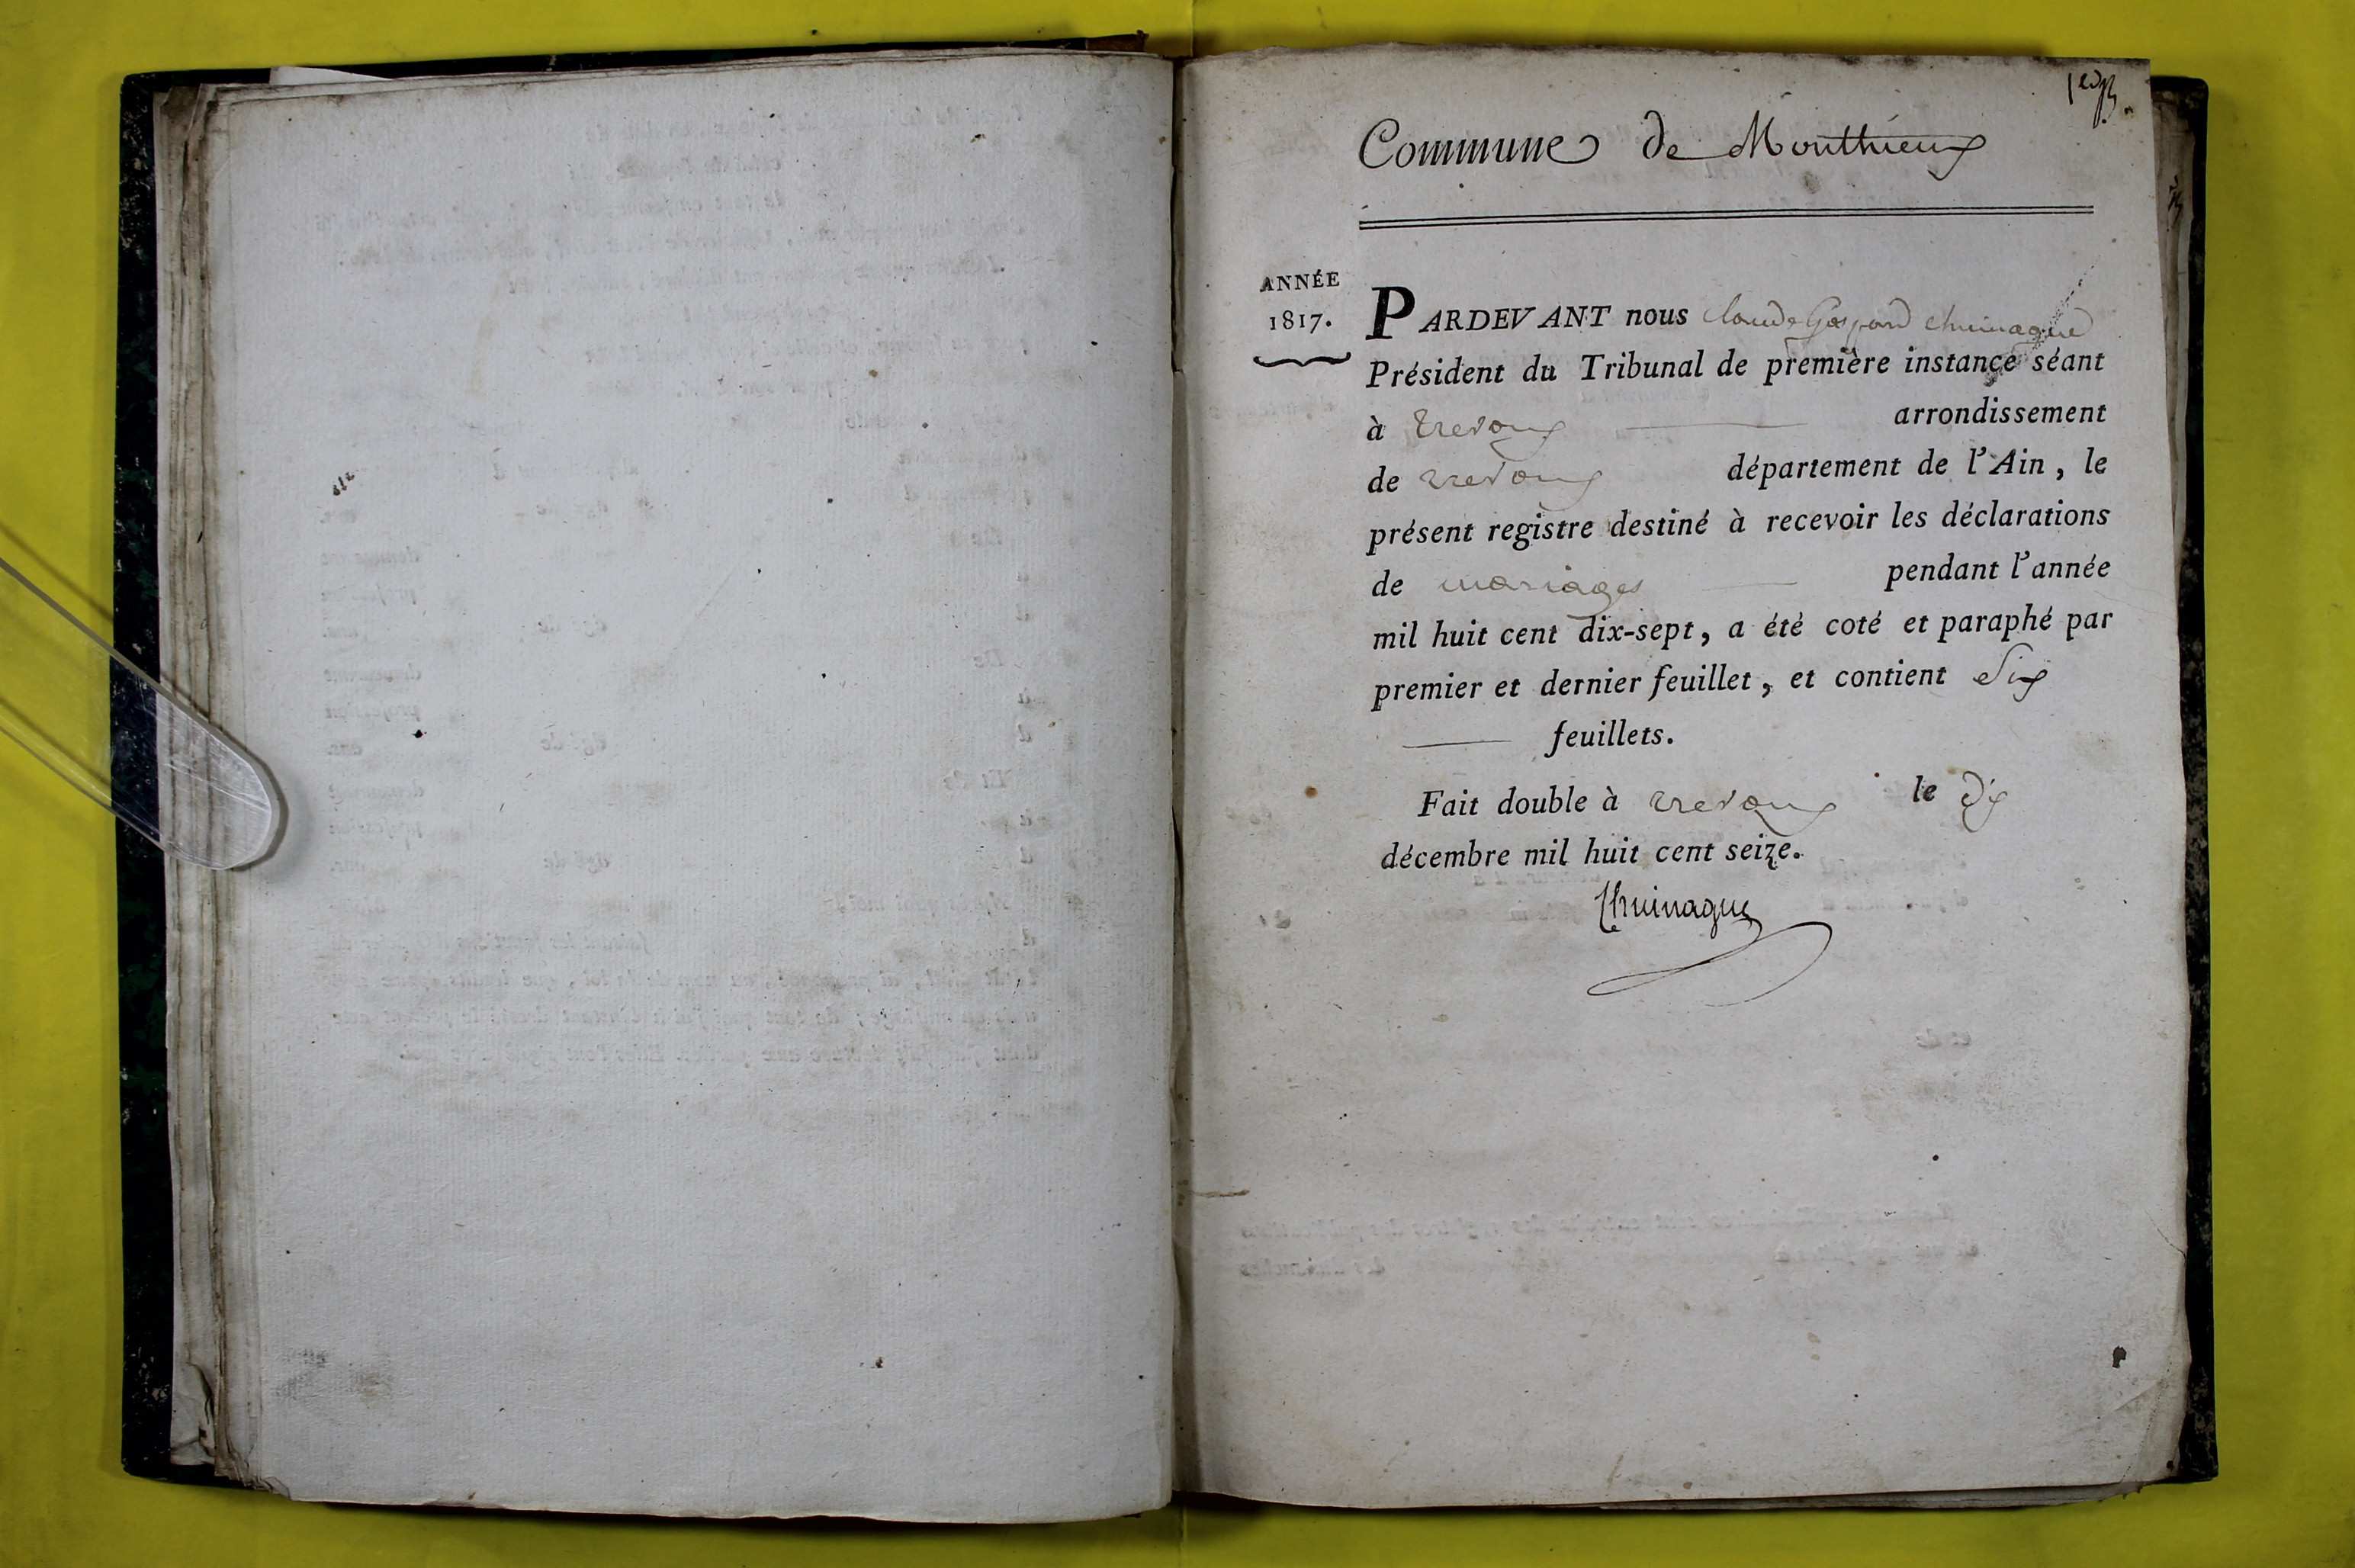 1er
Commune de Monthieux
ANNÉE
1817.
PARDEVANT nous Claude Gaspard Chuinague
Président du Tribunal de première instance séant
à trevoux arrondissement
de trevoux département de l'Ain, le
présent registre destiné à recevoir les déclarations
de mariages pendant l'année
mil huit cent dix-sept, a été coté et paraphé par
premier et dernier feuillet, et contient Six
feuillets.
Fait double à trevoux le dix
décembre mil huit cent seize.
Chuinague